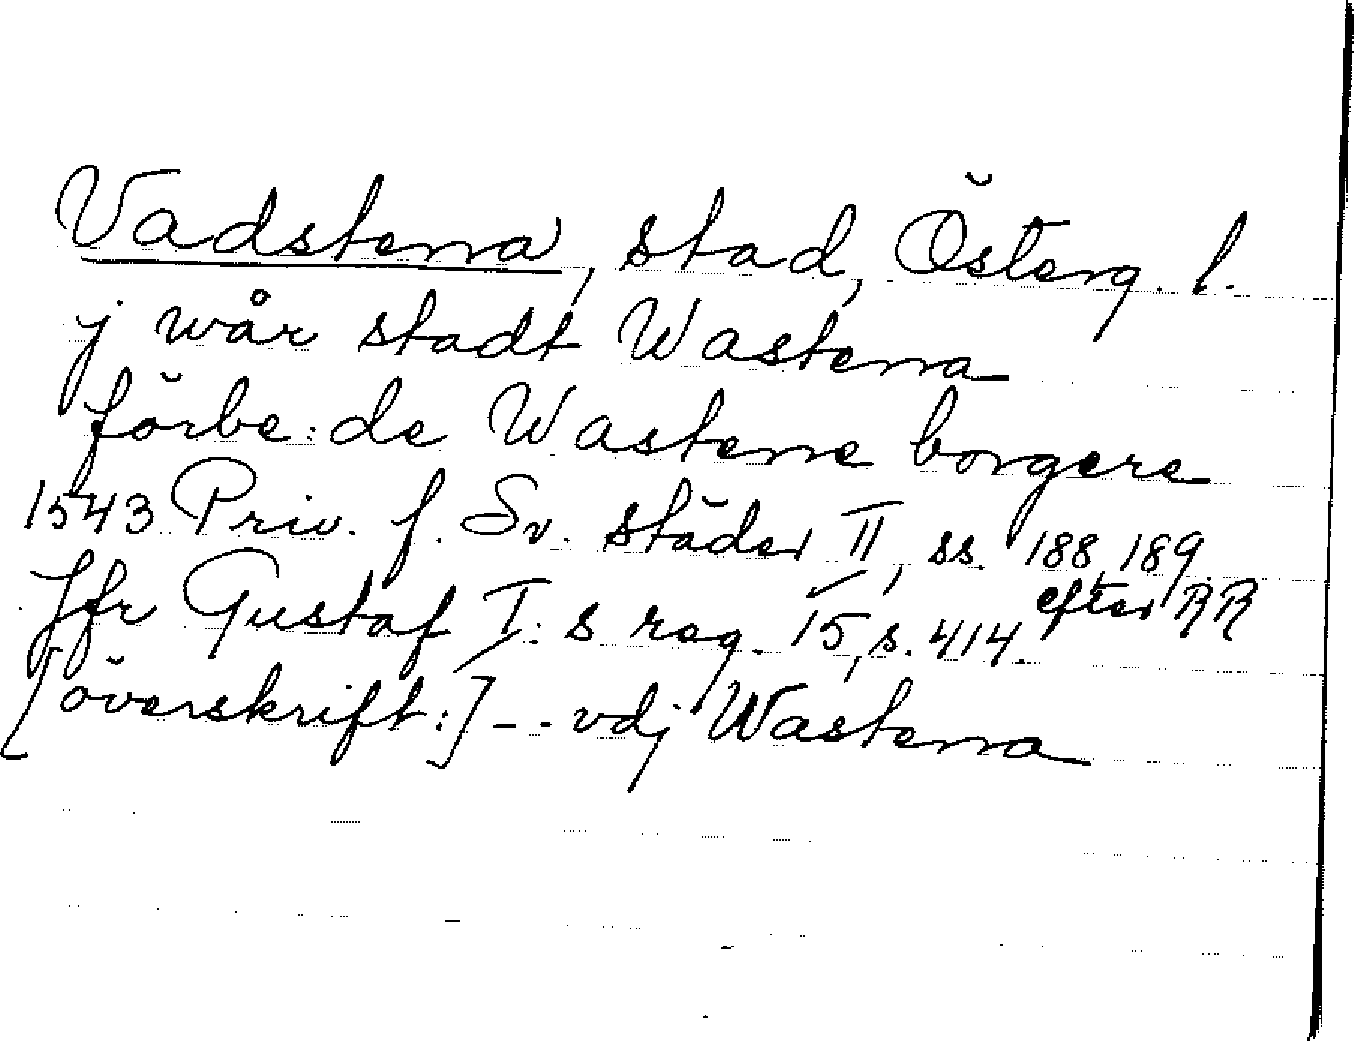 Vadstena, stad, Österg. l.
j wår stadt Wastena
förbe:de Wastene borgere
1543 Priv. f. Sv. städer II, ss. 188, 189
efter RR
Jfr Gustaf I:s reg. 15, s. 414.
[överskrift:] - - vdj Wastena